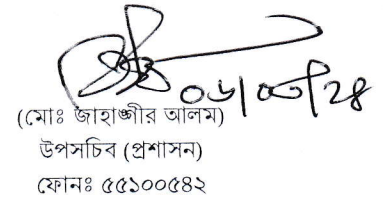 ০৬/০৩/২৪
(মোঃ জাহাঙ্গীর আলম)
উপসচিব (প্রশাসন)
ফোনঃ ৫৫১০০৫৪২